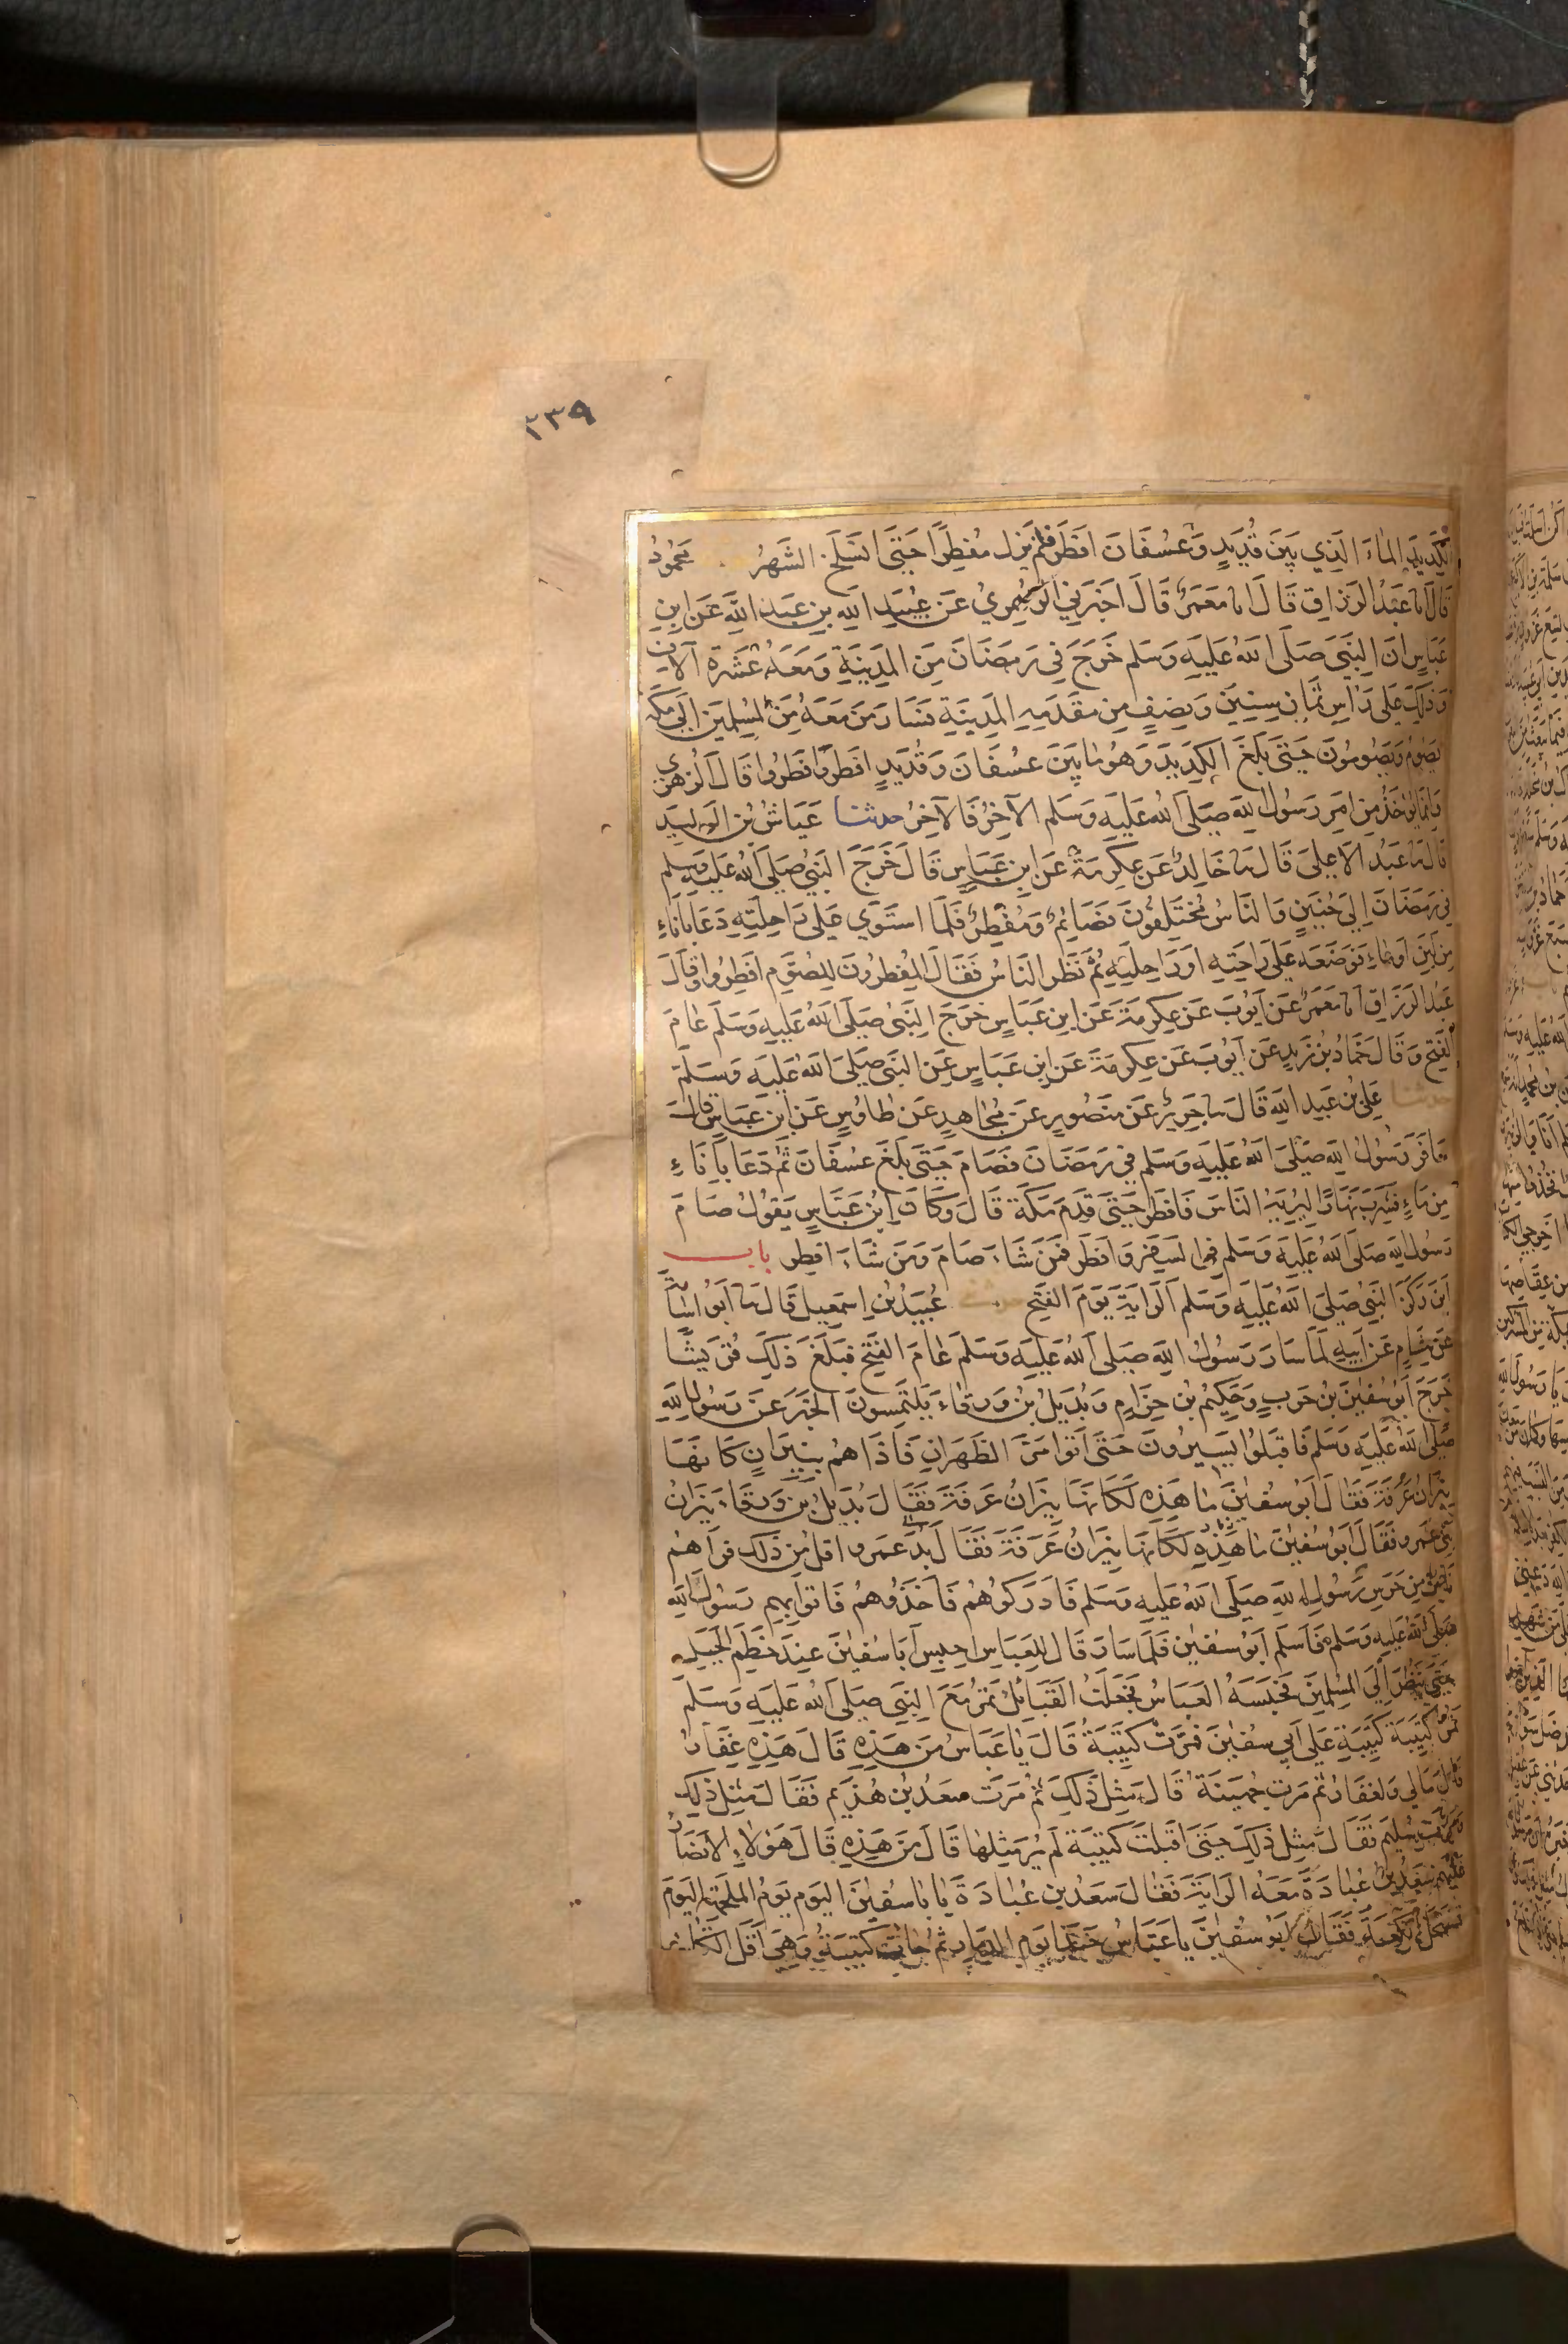 ٢٣٩
الكَدِيدَ المَاءَ الَّذِي بَيْنَ قُدَيْدٍ وَعُسْفَانَ افْطَرَ فَلَمْ يَزَل مُفْطِرًا حَتَّى انْسَلَخَ الشَّهْرُ مَحْمُودُ
قَالَ انا عَبْدُ الرَّزَّاقِ قَالَ انا مَعْمَرٌ قَالَ اخْبَرَنِي الزُّهْرِيُّ عَن عُبَيْدِ اللهِ بنِ عَبْدِ اللَّهِ عَنِ ابنِ
عَبَّاسٍ انَّ النَّبِيَّ صَلَّى اللهُ عَلَيْهِ وَسَلَّم خَرَجَ فِي رَمَضَانَ مِنَ المَدِينَةِ وَمَعَهُ عَشَرَةُ آلافٍ
وَذَلِكَ عَلَى رَاسِ ثَمَانِ سِنِينَ وَنِصْفٍ مِن مَقْدَمِهِ المَدِينَةِ فَسَارَ مَنْ مَعَهُ مِنَ المُسْلِمِينَ الَى مَكَّة
يَصُومُ وَيَصُومُونَ حَتَّى بَلَغَ الكَدِيدَ وَهُوَ مَا بَيْنَ عُسْفَانَ وَقُدَيْدٍ افْطَرَ وَافْطَرُوا قَالَ الزُّهْرِي
وَانَّمَا يُؤْخَذُ مِنْ امْرِ رَسُولِ اللهِ صَلَّى اللهُ عَلَيْهِ وَسَلَّم الآخِرُ فَالآخِرُ حدثنا عَيَّاشُ بْنُ الوَلِيدِ
قَالَ نا عَبْدُ الاعْلَى قَالَ نا خَالِدٌ عَنْ عِكْرِمَةَ عَنِ ابنِ عَبَّاسٍ قَالَ خَرَجَ النَّبِيُّ صَلَّى اللهُ عَلَيْهِ وَسَلَّم
فِي رَمَضَانَ الَى حُنَيْنٍ وَالنَّاسُ مُخْتَلِفُونَ فَصَائِمٌ وَمُفْطِرٌ فَلَمَّا اسْتَوَى عَلَى رَاحِلَتِهِ دَعَا بِانَاءٍ
مِن لَبَنٍ اوْ مَاءٍ فَوَضَعَهُ عَلَى رَاحَتِهِ اوْ رَاحِلَتِهِ ثُمَّ نَظَرَ النَّاسُ فَقَالَ المُفْطِرُونَ لِلصُّوَّمِ افْطِرُوا وَقَالَ
عَبْدُ الرَّزَّاقِ انا مَعْمَرٌ عَنْ ايُّوبَ عَنْ عِكْرِمَةَ عَنِ ابنِ عَبَّاسٍ خَرَجَ النَّبِيُّ صَلَّى اللهُ عَلَيْهِ وَسَلَّمَ عَامَ
الفَتْحِ وَقَالَ حَمَّادُ بنُ زَيْدٍ عَنْ ايُّوبَ عَنْ عِكْرِمَةَ عَنِ ابنِ عَبَّاسٍ عَنِ النَّبِيِّ صَلَّى اللهُ عَلَيْهِ وَسَلَّم
حدثنا عَلِيُّ بْنُ عَبدِ اللهِ قَالَ نا جَرِيرٌ عَنْ مَنْصُورٍ عَنْ مُجَاهِدٍ عَنْ طَاوُسٍ عَنِ ابنِ عَبَّاسٍ قَالَ
سَافَرَ رَسُولُ اللهِ صَلَّى اللهُ عَلَيْهِ وَسَلَّم فِي رَمَضَانَ فَصَامَ حَتَّى بَلَغَ عُسْفَانَ ثُمَّ دَعَا بِانَاءٍ
مِنْ مَاءٍ فَشَرِبَ نَهَارًا لِيُرِيَهُ النَّاسَ فَافْطَرَ حَتَّى قَدِمَ مَكَّةَ قَالَ وَكَانَ ابْنُ عَبَّاسٍ يَقُولُ صَامَ
رَسُولُ اللهِ صَلَّى اللهُ عَلَيْهِ وَسَلَّم فِي السَّفَرِ وَافْطَرَ فَمَنْ شَاءَ صَامَ وَمَنْ شَاءَ افْطَرَ باب
ايْنَ رَكَزَ النَّبِيُّ صَلَّى اللهُ عَلَيْهِ وَسَلَّم الرَّايَةَ يَوْمَ الفَتْحِ عُبَيْدُ بْنُ اسْمعِيلَ قَالَ نا ابُو اسَامَةَ
عَنْ هِشَامٍ عَنْ ابِيهِ لَمَّا سَارَ رَسُولُ اللهِ صَلَّى اللهُ عَلَيْهِ وَسَلَّمَ عَامَ الفَتْحِ فَبَلَغَ ذَلِكَ قُرَيْشًا
خَرَجَ ابُو سُفْينَ بْنُ حَرْبٍ وَحَكِيمُ بْنُ حِزَامٍ وَبُدَيْلُ بْنُ وَرقَاءَ يَلْتَمِسُونَ الخَبَرَ عَنْ رَسُولِ اللهِ
صَلَّى اللهُ عَلَيْهِ وَسَلَّم فَاقْبَلُوا يَسِيرُونَ حَتَّى اتَوْا مَرَّ الظَّهْرَانِ فَاذَا هُمْ بِنِيرَانٍ كَانَّهَا
نِيرَانُ عَرَفَةَ فَقَالَ ابُو سُفينَ مَا هَذِهِ لَكَانَّهَا نِيرَانُ عَرَفَةَ فَقَالَ بُدَيْلُ بْنُ وَرقَاءَ نِيرَانُ
بَنِي عَمْرٍو فَقَالَ ابُو سُفْينَ مَا هَذِهِ لَكَانَّهَا نِيرَانُ عَرَفَةَ فَقَالَ عَمْرو اقَلُّ مِنْ ذَلِكَ فَرَآهُمْ
نَاسٌ مِنْ حَرَسِ رَسُولِ اللهِ صَلَّى اللهُ عَلَيْهِ وَسَلَّم فَادْرَكُوهُمْ فَاخَذُوهُمْ فَاتَوْا بِهِمْ رَسُولَ اللهِ
صَلَّى اللهُ عَلَيْهِ وَسَلَّم فَاسْلَمَ ابُو سُفْين فَلَمَّا سَارَ قَالَ لِلعَبَّاسِ احْبِسْ ابَا سُفْينَ عِنْدَ خَطْمِ الجَبَلِ
حَتَّى يَنْظُرَ الَى المُسْلِمِينَ فَحَبَسَهُ العَبَّاسُ فَجَعَلَتِ القَبَائِلُ تَمُرُّ مَعَ النَّبِيِّ صَلَّى اللهُ عَلَيْهِ وَسَلَّم
تَمُرُّ كَتِيبَةً كَتِيبَةً عَلَى ابِي سُفْينَ فَمَرَّتْ كَتِيبَةٌ قَالَ يَا عَبَّاسُ مَنْ هَذِهِ قَالَ هَذِهِ غِفَارُ
قَالَ مَا لِي وَلِغِفَارَ ثُمَّ مَرَّتْ جُهَيْنَةُ قَالَ مِثْلَ ذَلِكَ ثُمَّ مَرَّتْ سَعْدُ بْنُ هُذَيْم فَقَالَ مِثْلَ ذَلِكَ
وَمَرَّتْ سُلَيْم فَقَالَ مِثْلَ ذَلِكَ حَتَّى اقْبَلَتْ كَتِيبَةٌ لَمْ يُرَ مِثْلُهَا قَالَ مَنْ هَذِهِ قَالَ هَؤُلَاءِ الانْصَارُ
عَلَيْهِمْ سَعْدُ بْنُ عُبَادَةَ مَعَهُ الرَّايَةُ فَقَالَ سَعْدُ بن عُبَادَةَ يَا بَا سُفْينَ اليَوْم يَوْمُ المَلْحَمَةِ اليَوْمَ
تُسْتَحَلُّ الكَعْبَةُ فَقَالَ ابُو سُفْينَ يا عَبَّاسُ حَبَّذَا يَوْمُ الذِّمَارِ ثُمَّ جَاءَتْ كَتِيبَةٌ وَهِيَ اقَلُّ الكَتَائِبِ